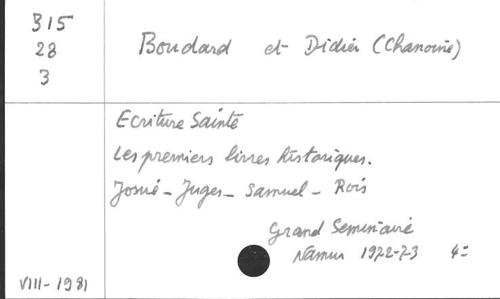 315
28
3
Boudard et Didier (Chanoine)
Ecriture Sainte
Les premiers livres historiques.
Josué - Juges - Samuel - Rois
Grand Seminaire
Namur 1972-73 4°
VIII - 1981